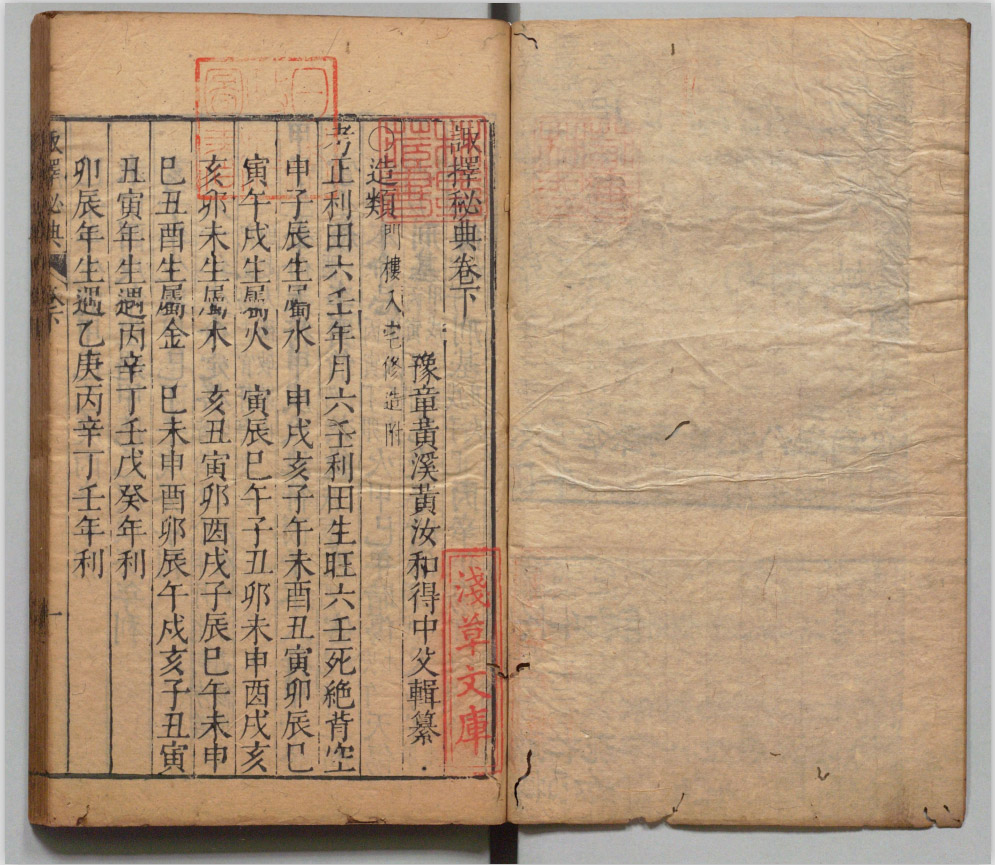 諏擇秘典卷下
豫章黃溪黃汝和得中父輯纂
○造類 門樓入宅修造附
考正利田六壬年月六壬利田生旺六壬死絶背空
申子辰生屬水 申戌亥子午未酉丑寅卯辰巳
寅午戌生屬火 寅辰巳午子丑卯未申酉戌亥
亥卯未生屬木 亥丑寅卯酉戌子辰巳午未申
巳丑酉生屬金 巳未申酉卯辰午戍亥子丑寅
丑寅年生遇丙辛丁壬戊癸年利
卯辰年生遇乙庚丙辛丁壬年利
諏擇秘典 卷下
一
淺草文庫